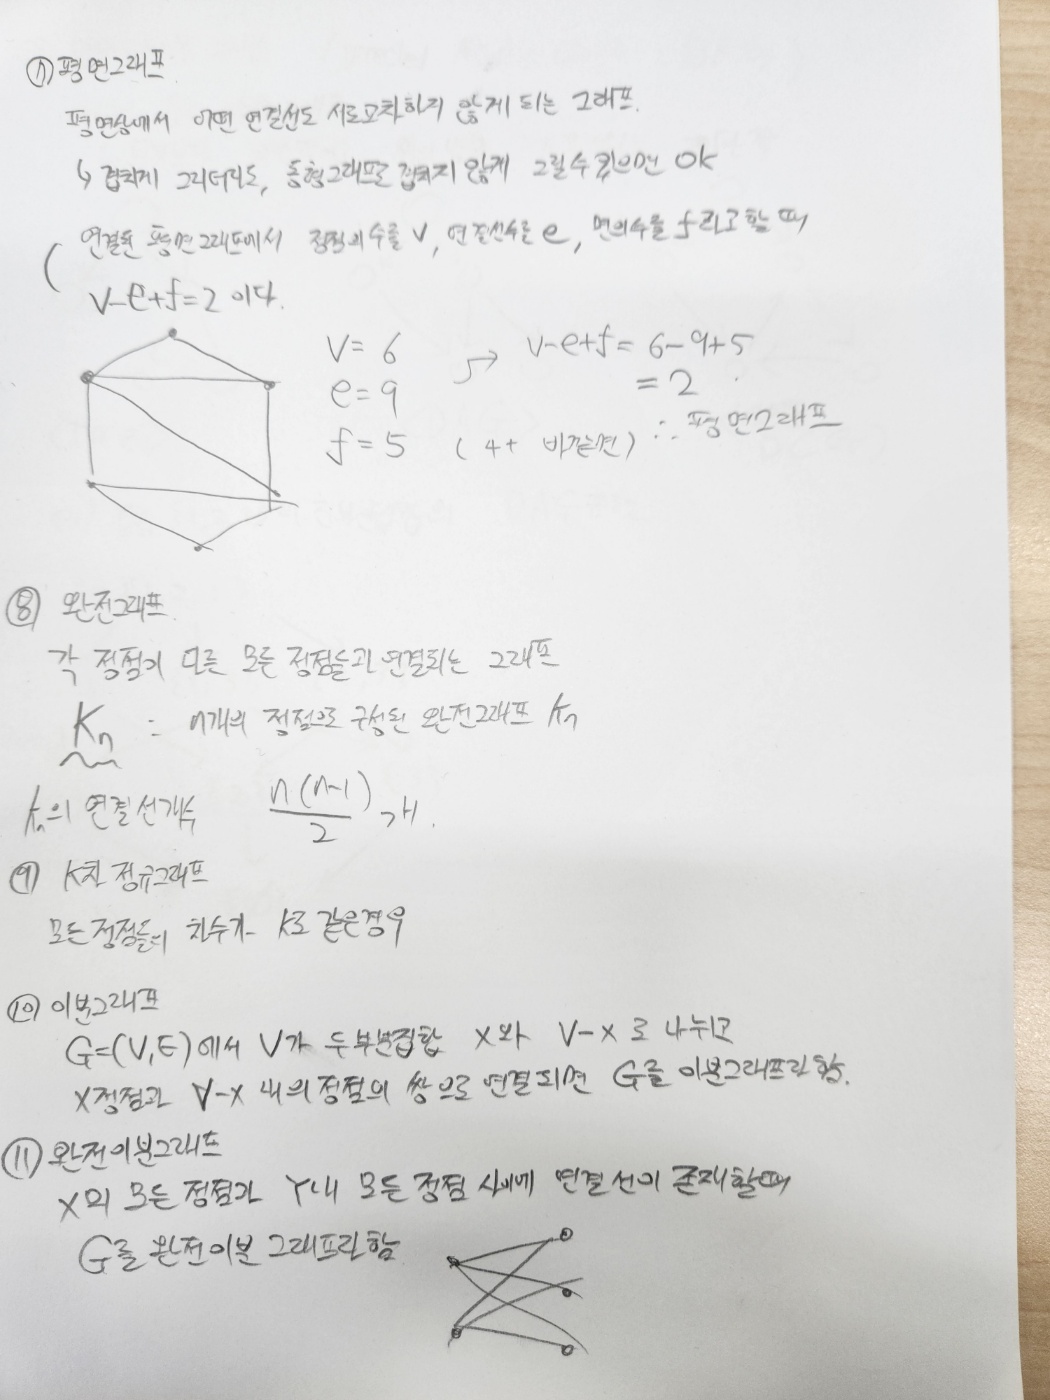 ⑦ 평면그래프
평면상에서 어떤 연결선도 서로교차하지 않게 되는 그래프.
↳ 겹치게 그리더라도, 동형그래프로 겹치지 않게 그릴수 있으면 OK
연결된 평면그래프에서 정점의 수를 v, 연결선수를 e, 면의수를 f라고 할 때
v-e+f=2 이다.
v= 6
e=9
f=5 (4+ 바깥면)
v-e+f= 6-9+5
=2
∴ 평면그래프
⑧ 완전그래프
각 정점이 다른 모든 정점들과 연결되는 그래프
Kn : n개의 정점으로 구성된 완전그래프 Kn
Kn의 연결선개수 n(n-1)/2 개.
⑨ K차 정규그래프
모든정점들의 차수가 K로 같은경우
⑩ 이분그래프
G=(V,E)에서 V가 두부분집합 X와 V-X로 나뉘고
X정점과 V-X 내의정점의 쌍으로 연결되면 G를 이분그래프라 함.
⑪ 완전이분그래프
X의 모든 정점과 Y내 모든 정점 사이에 연결선이 존재할때
G를 완전이분 그래프라함